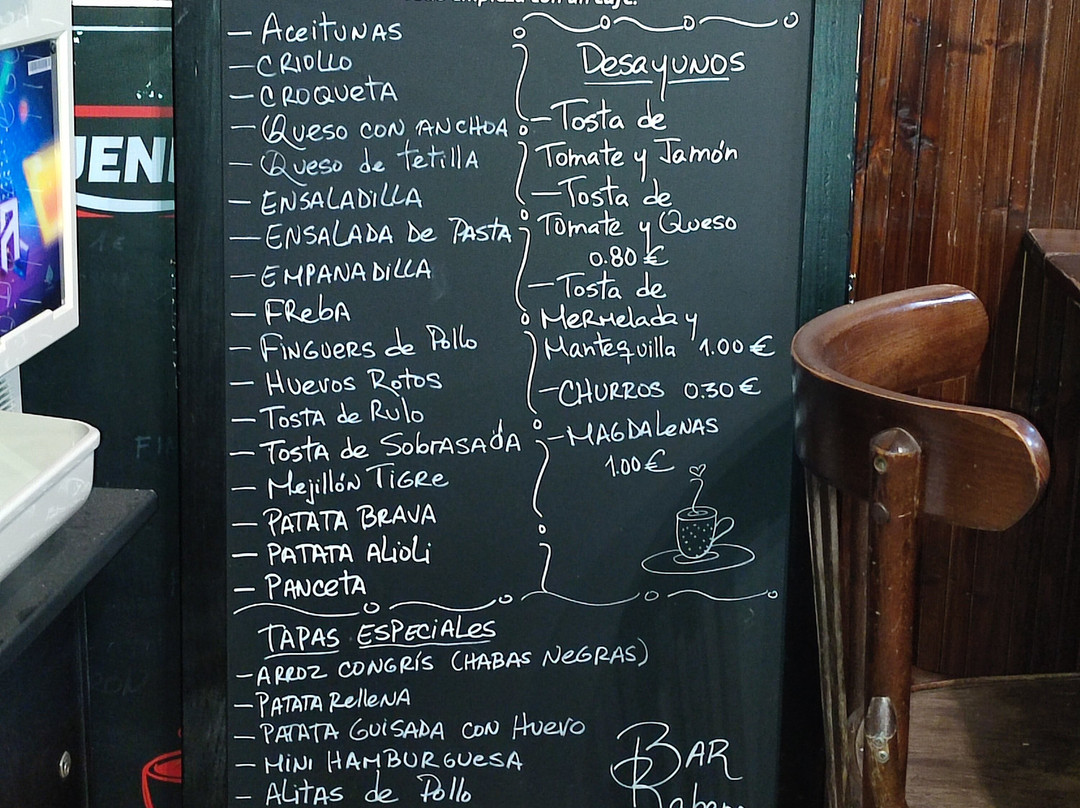 - Aceitunas
- Criollo
- Croqueta
- Queso con anchoa
- Queso de tetilla
- Ensaladilla
- Ensalada de Pasta
- Empanadilla
- Freba
- Finguers de Pollo
- Huevos Rotos
- Tosta de Rulo
- Tosta de Sobrasada
- Mejillón Tigre
- Patata Brava
- Patata Alioli
- Panceta
Desayunos
- Tosta de
Tomate y Jamón
- Tosta de
Tomate y Queso
0.80 €
- Tosta de
Mermelada y
Mantequilla 1.00 €
- Churros 0.30 €
- Magdalenas
1.00 €
Tapas Especiales
- Arroz congrís (habas negras)
- Patata Rellena
- Patata Guisada con Huevo
- Mini Hamburguesa
- Alitas de Pollo
Bar